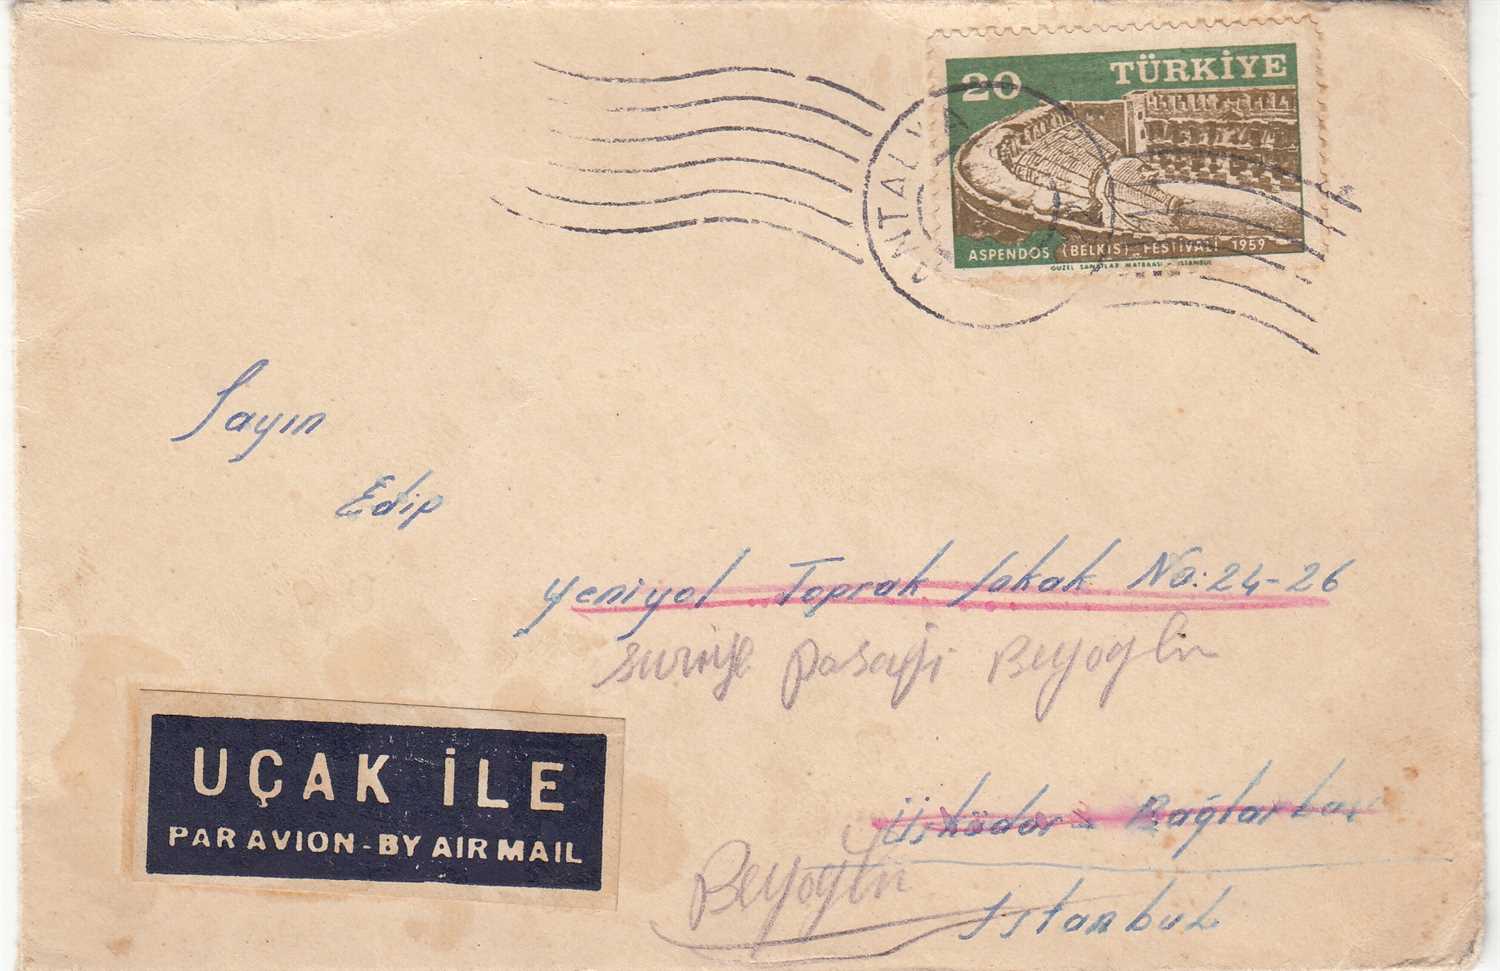 20 TÜRKİYE
ANTALYA
ASPENDOS (BELKIS) FESTİVALİ 1959
GÜZEL SANATLAR MATBAASI - İSTANBUL
Sayın
Edip
Yeniyol Toprak Sokak No: 24-26
Suriye Pasajı Beyoğlu
Üsküdar Bağlarbaşı
Beyoğlu
İstanbul
UÇAK İLE
PAR AVION - BY AIR MAIL